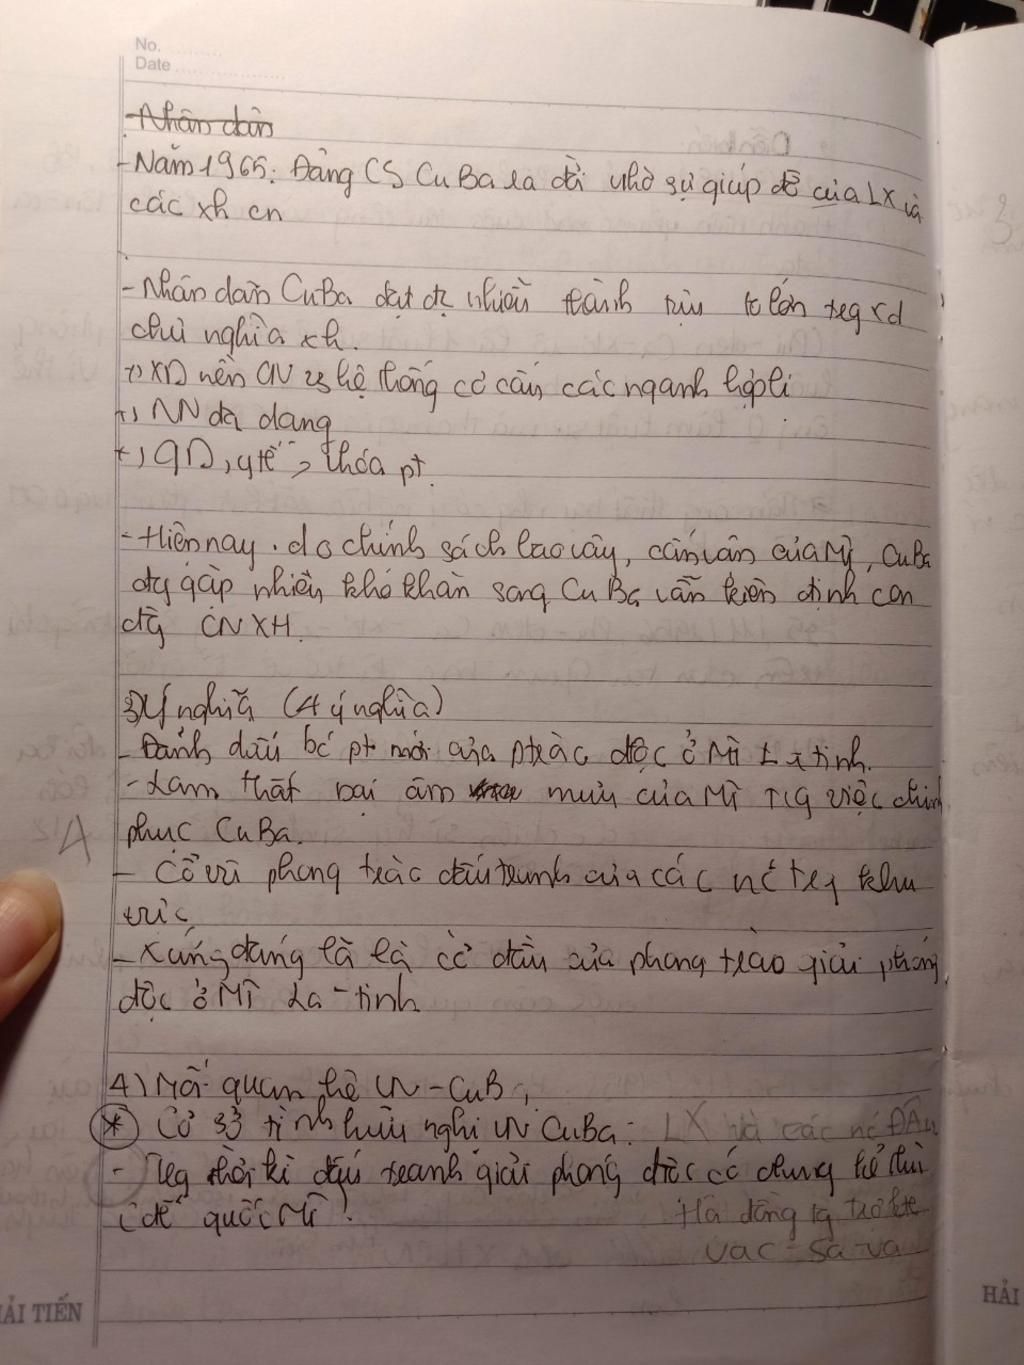 No.
Date
Nhân dân
- Năm 1965: Đảng CS CuBa ra đời nhờ sự giúp đỡ của LX và
các xh cn
- Nhân dân CuBa đạt đc nhiều thành tựu to lớn trog xd
chủ nghĩa xh.
+) XD nền CN vs hệ thống cơ cấu các nganh hợp lí
+) NN đa dạng
+) GD, y tế, > hóa pt.
- Hiện nay. do chính sách bao vây, cấm vân của Mĩ, CuBa
đg gặp nhiều khó khăn song CuBa vẫn kiên định con
đg CNXH.
3) Ý nghĩa (4 ý nghĩa)
- Đánh dấu bc pt mới của ptrào đtộc ở Mĩ La tinh.
- Lam thất bại âm mưu của Mĩ trg việc chinh
phục CuBa.
4
- Cổ vũ phong trào đấu tranh của các nc trog khu
vực
- Xứng đáng là là cờ đầu của phong trào giải phóng
đtộc ở Mĩ La-tinh
4) Mối quan hệ VN-CuBa
* Cơ sở tình hữu nghị VN CuBa: LX và các nc ĐÂu
- Trog thời kì đấu tranh giải phóng đtộc có chung kẻ thù
là đế quốc Mĩ.
Hđ đồng tg trợ kte
Vac-sa-va
HẢI TIẾN
HẢI